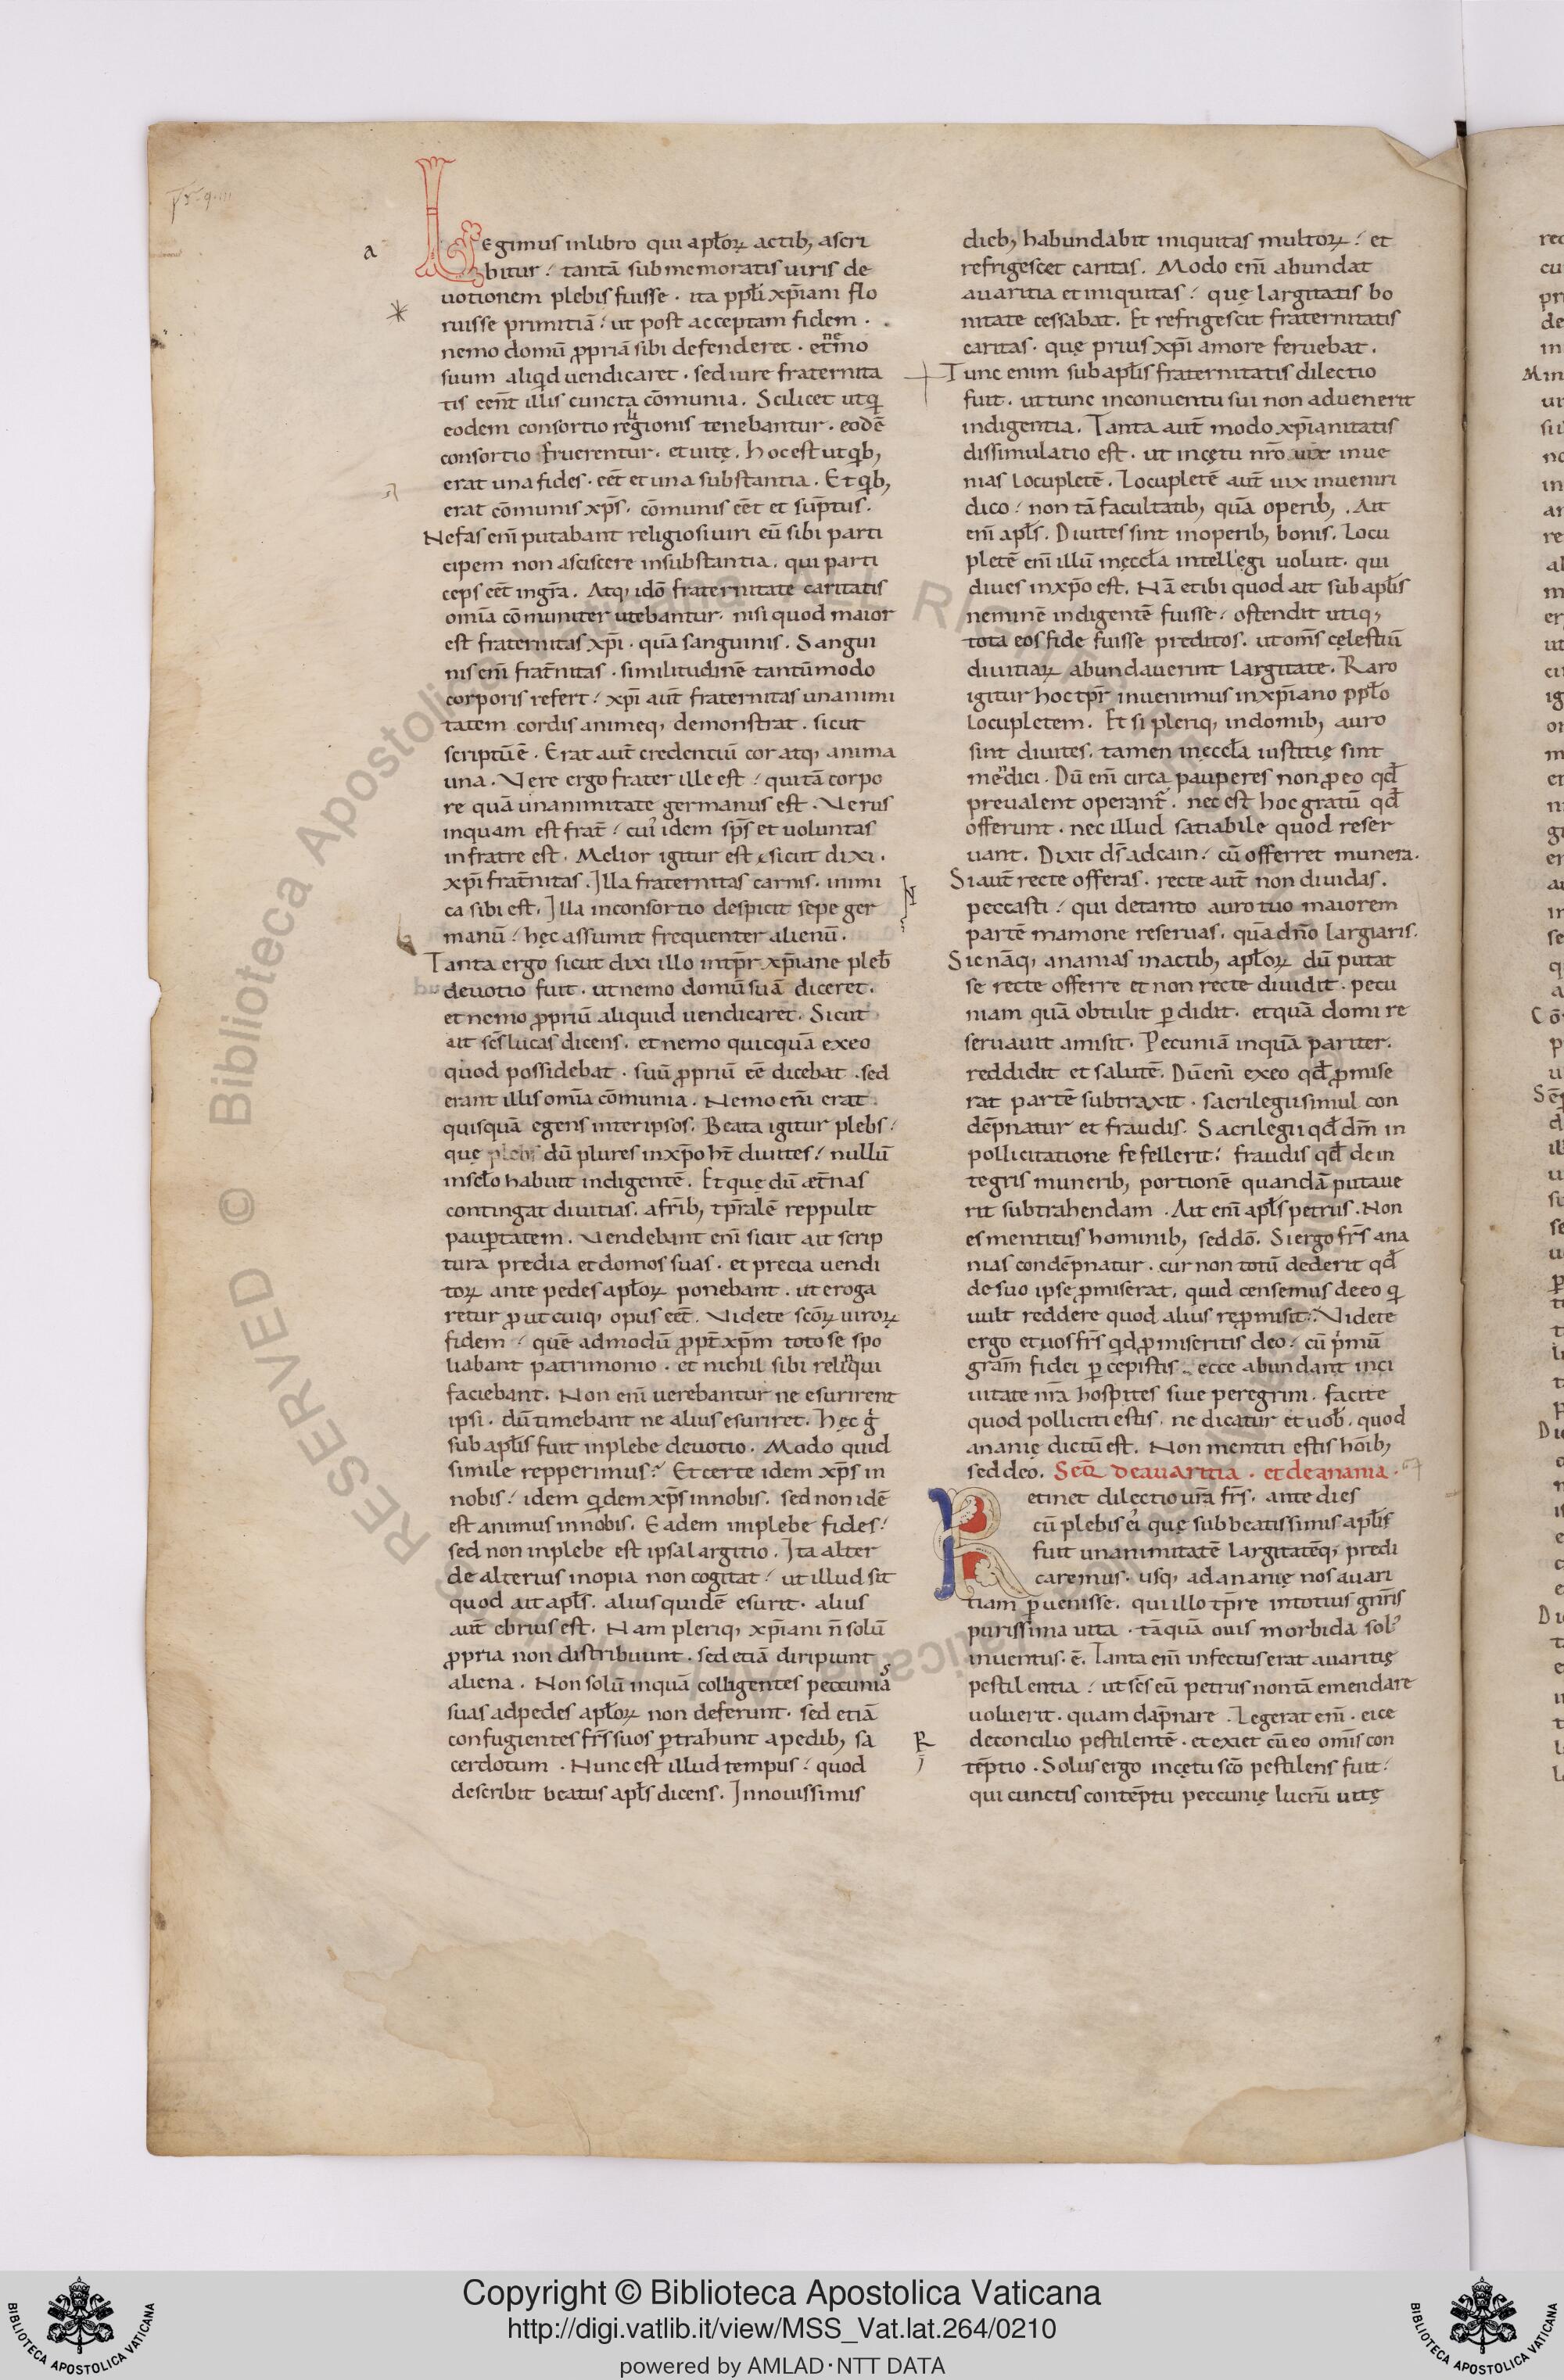 a
Legimus in libro qui apƚoꝝ actib; ascri
bitur / tantā sub memoratis uiris de
uotionem plebis fuisse . ita ppƚi xp̄iani flo
ruisse primitiā / ut post acceptam fidem .
nemo domū ꝓpriā sibi defenderet . et nemo
suum aliqd uendicaret . sed iure fraternita
tis eēnt illis cuncta cōmunia . Scilicet ut q
eodem consortio religionis tenebantur . eodē
consortio fruerentur . et uitę . hoc est ut qb;
erat una fides . eēt et una substantia . Et qb;
erat cōmunis xp̄s . cōmunis eēt et sūptus .
Nefas eni̅ putabant religiosi uiri eū sibi parti
cipem non asciscere in substantia . qui parti
ceps eēt in gr̄a . Atq; idō fraternitate caritatis
omīa cōmuniter utebantur . nisi quod maior
est fraternitas xp̄i . quā sanguinis . Sangui
nis eni̅ frat̄nitas . similitudinē tantūmodo
corporis refert / xp̄i aut̄ fraternitas unanimi
tatem cordis animeq; demonstrat . sicut
scriptū ē . Erat aut̄ credentiū cor atq; anima
una . Vere ergo frater ille est / qui tā corpo
re quā unanimitate germanus est . Verus
inquam est frat̄ / cui idem sp̄s et uoluntas
in fratre est . Melior igitur est sicut dixi .
xp̄i frat̄nitas . Illa fraternitas carnis . inimi
ca sibi est . Illa in consortio despicit sepe ger
manū / hęc assumit frequenter alienū .
Tanta ergo sicut dixi illo intp̄r xp̄iane pleb̄
deuotio fuit . ut nemo domū suā diceret .
et nemo ꝓpriū aliquid uendicaret . Sicut
ait sc̄s lucas dicens . et nemo quicquā ex eo
quod possidebat . suū ꝓpriū eē dicebat . sed
erant illis omīa cōmunia . Nemo eni̅ erat
quisquā egens inter ipsos . Beata igitur plebs /
quę plebs dū plures in xp̄o ht̄ diuites / nullū
in sc̄lo habuit indigentē . Et quę dū æt̄nas
contingat diuitias . a frīb; tp̄ralē reppulit
paup̱tatem . Vendebant eni̅ sicut ait scrip
tura predia et domos suas . et precia uendi
toꝝ ante pedes apƚoꝝ ponebant . ut eroga
retur ꝓut cuiq; opus eēt . Videte scōꝝ uiroꝝ
fidem / quē admodū ꝓpt̄ xp̄m toto se spo
liabant patrimonio . et nichil sibi reliqui
faciebant . Non eni̅ uerebantur ne esurirent
ipsi . dū timebant ne alius esuriret . hęc g
sub apƚis fuit in plebe deuotio . Modo quid
simile repperimus ? Et certe idem xp̄s in
nobis / idem qdem xp̄s in nobis . sed non idē
est animus in nobis . Eadem in plebe fides /
sed non in plebe est ipsa largitio . Ita alter
de alterius inopia non cogitat / ut illud sit
quod ait apƚs . alius quidē esurit . alius
aut̄ ebrius est . Nam pleriq; xp̄iani n̄ solū
ꝓpria non distribuunt . sed etiā diripiunt
aliena . Non solū inquā colligentes peccuniās
suas ad pedes apƚoꝝ non deferunt . sed etiā
confugientes fr̄s suos p̱trahunt a pedib; sa
cerdotum . Nunc est illud tempus / quod
describit beatus apƚs dicens . In nouissimis
dieb; habundabit iniquitas multoꝝ / et
refrigescet caritas . Modo eni̅ abundat
auaritia et iniquitas / quę largitatis bo
nitate cessabat . Et refrigescit fraternitatis
caritas . quę prius xp̄i amore feruebat .
Tunc enim sub apƚis fraternitatis dilectio
fuit . ut tunc in conuentu sui non aduenerit
indigentia . Tanta aut̄ modo xp̄ianitatis
dissimulatio est . ut in cętu nr̄o uix inue
nias locupletē . Locupletē aut̄ uix inueniri
dico / non tā facultatib; quā operib; . Ait
eni̅ apƚs . Diuites sint in operib; bonis . Locu
pletē eni̅ illū in ęccƚa intellegi uoluit . qui
diues in xp̄o est . Nā et ibi quod ait sub apƚis
neminē indigentē fuisse / ostendit utiq;
tota eos fide fuisse preditos . ut om̄s cęlestiū
diuitiaꝝ abundauerint largitate . Raro
igitur hoc tp̄r inuenimus in xp̄iano ppƚo
locupletem . Et si pleriq; in domib; auro
sint diuites . tamen in ęccƚa iustitię sint
mendici . Dū eni̅ circa pauperes non ꝓ eo qd̄
preualent operant̄ . nec est hoc gratū qd̄
offerunt . nec illud satiabile quod reser
uant . Dixit ds̄ ad cain / cū offerret munera .
Si aut̄ recte offeras . recte aut̄ non diuidas .
peccasti / qui de tanto auro tuo maiorem
partē mamone reseruas . quā dn̄o largiaris .
Sic nāq; ananias in actib; apƚoꝝ dū putat
se recte offerre et non recte diuidit . pecu
niam quā obtulit p̱didit . et quā domi re
seruauit amisit . Pecuniā inquā pariter .
reddidit et salutē . Dū eni̅ ex eo qd̄ ꝓmise
rat partē subtraxit . sacrilegii simul con
dēpnatur et fraudis . Sacrilegii qd̄ dm̄ in
pollicitatione fefellerit / fraudis qd̄ de in
tegris munerib; portionē quandā putaue
rit subtrahendam . Ait eni̅ apƚs petrus . Non
es mentitus hominib; sed dō . Si ergo fr̄s ana
nias condēpnatur . cur non totū dederit qd̄
de suo ipse ꝓmiserat . quid censemus de eo q
uult reddere quod alius repromisit . Videte
ergo et uos fr̄s qd ꝓmiseritis deo / cū pmū
gram̄ fidei p̱cepistis . ecce abundant in ci
uitate nr̄a hospites siue peregrini . facite
quod polliciti estis . ne dicatur et uob̄ . quod
ananię dictū est . Non mentiti estis hōib;
sed deo . Seq̄ de auaritia . et de anania .
Retinet dilectio ur̄a fr̄s . ante dies
cū plebis ei quę sub beatissimis apƚis
fuit unanimitatē largitatēq; predi
caremus . usq; ad ananię nos auari
tiam p̱uenisse . qui illo tp̄re in totius gn̄ris
purissima uita . tāquā ouis morbida sol
inuentus . ē . Tanta eni̅ infectus erat auaritię
pestilentia / ut sc̄s eū petrus non tā emendare
uoluerit . quam dāpnare . Legerat eni̅ . eice
de concilio pestilentē . et exiet cū eo om̄is con
tēptio . Solus ergo in cętu scō pestilens fuit /
qui cunctis contēptu peccunię lucrū uitę
Copyright © Biblioteca Apostolica Vaticana
http://digi.vatlib.it/view/MSS_Vat.lat.264/0210
powered by AMLAD·NTT DATA